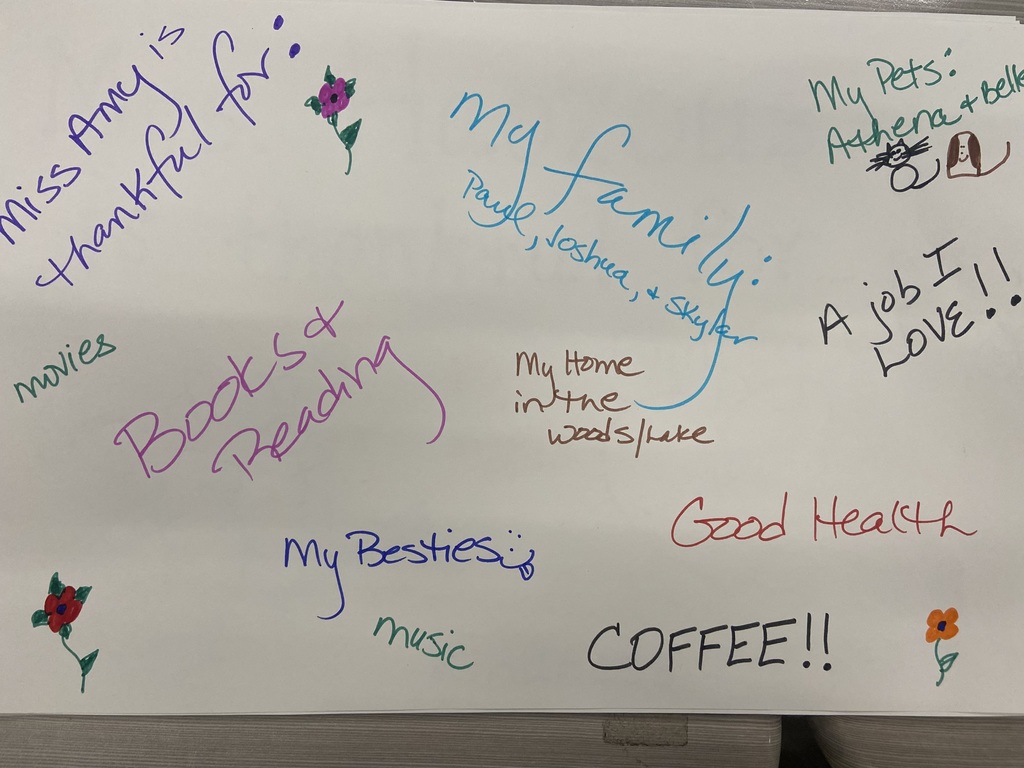 Miss Amy is
thankful for:
My family:
Paul, Joshua, + Skyler
My Pets:
Athena + Belle
A job I
LOVE!!
movies
Books &
Reading
My Home
in the
woods/Lake
Good Health
My Besties
music
COFFEE!!